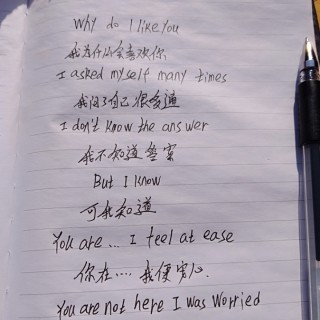 Why do I like You
我为什么会喜欢你
I asked myself many times
我问了自己很多遍
I don't know the answer
我不知道答案
But I know
可我知道
You are ... I feel at ease
你在.... 我便安心.
You are not here I was worried